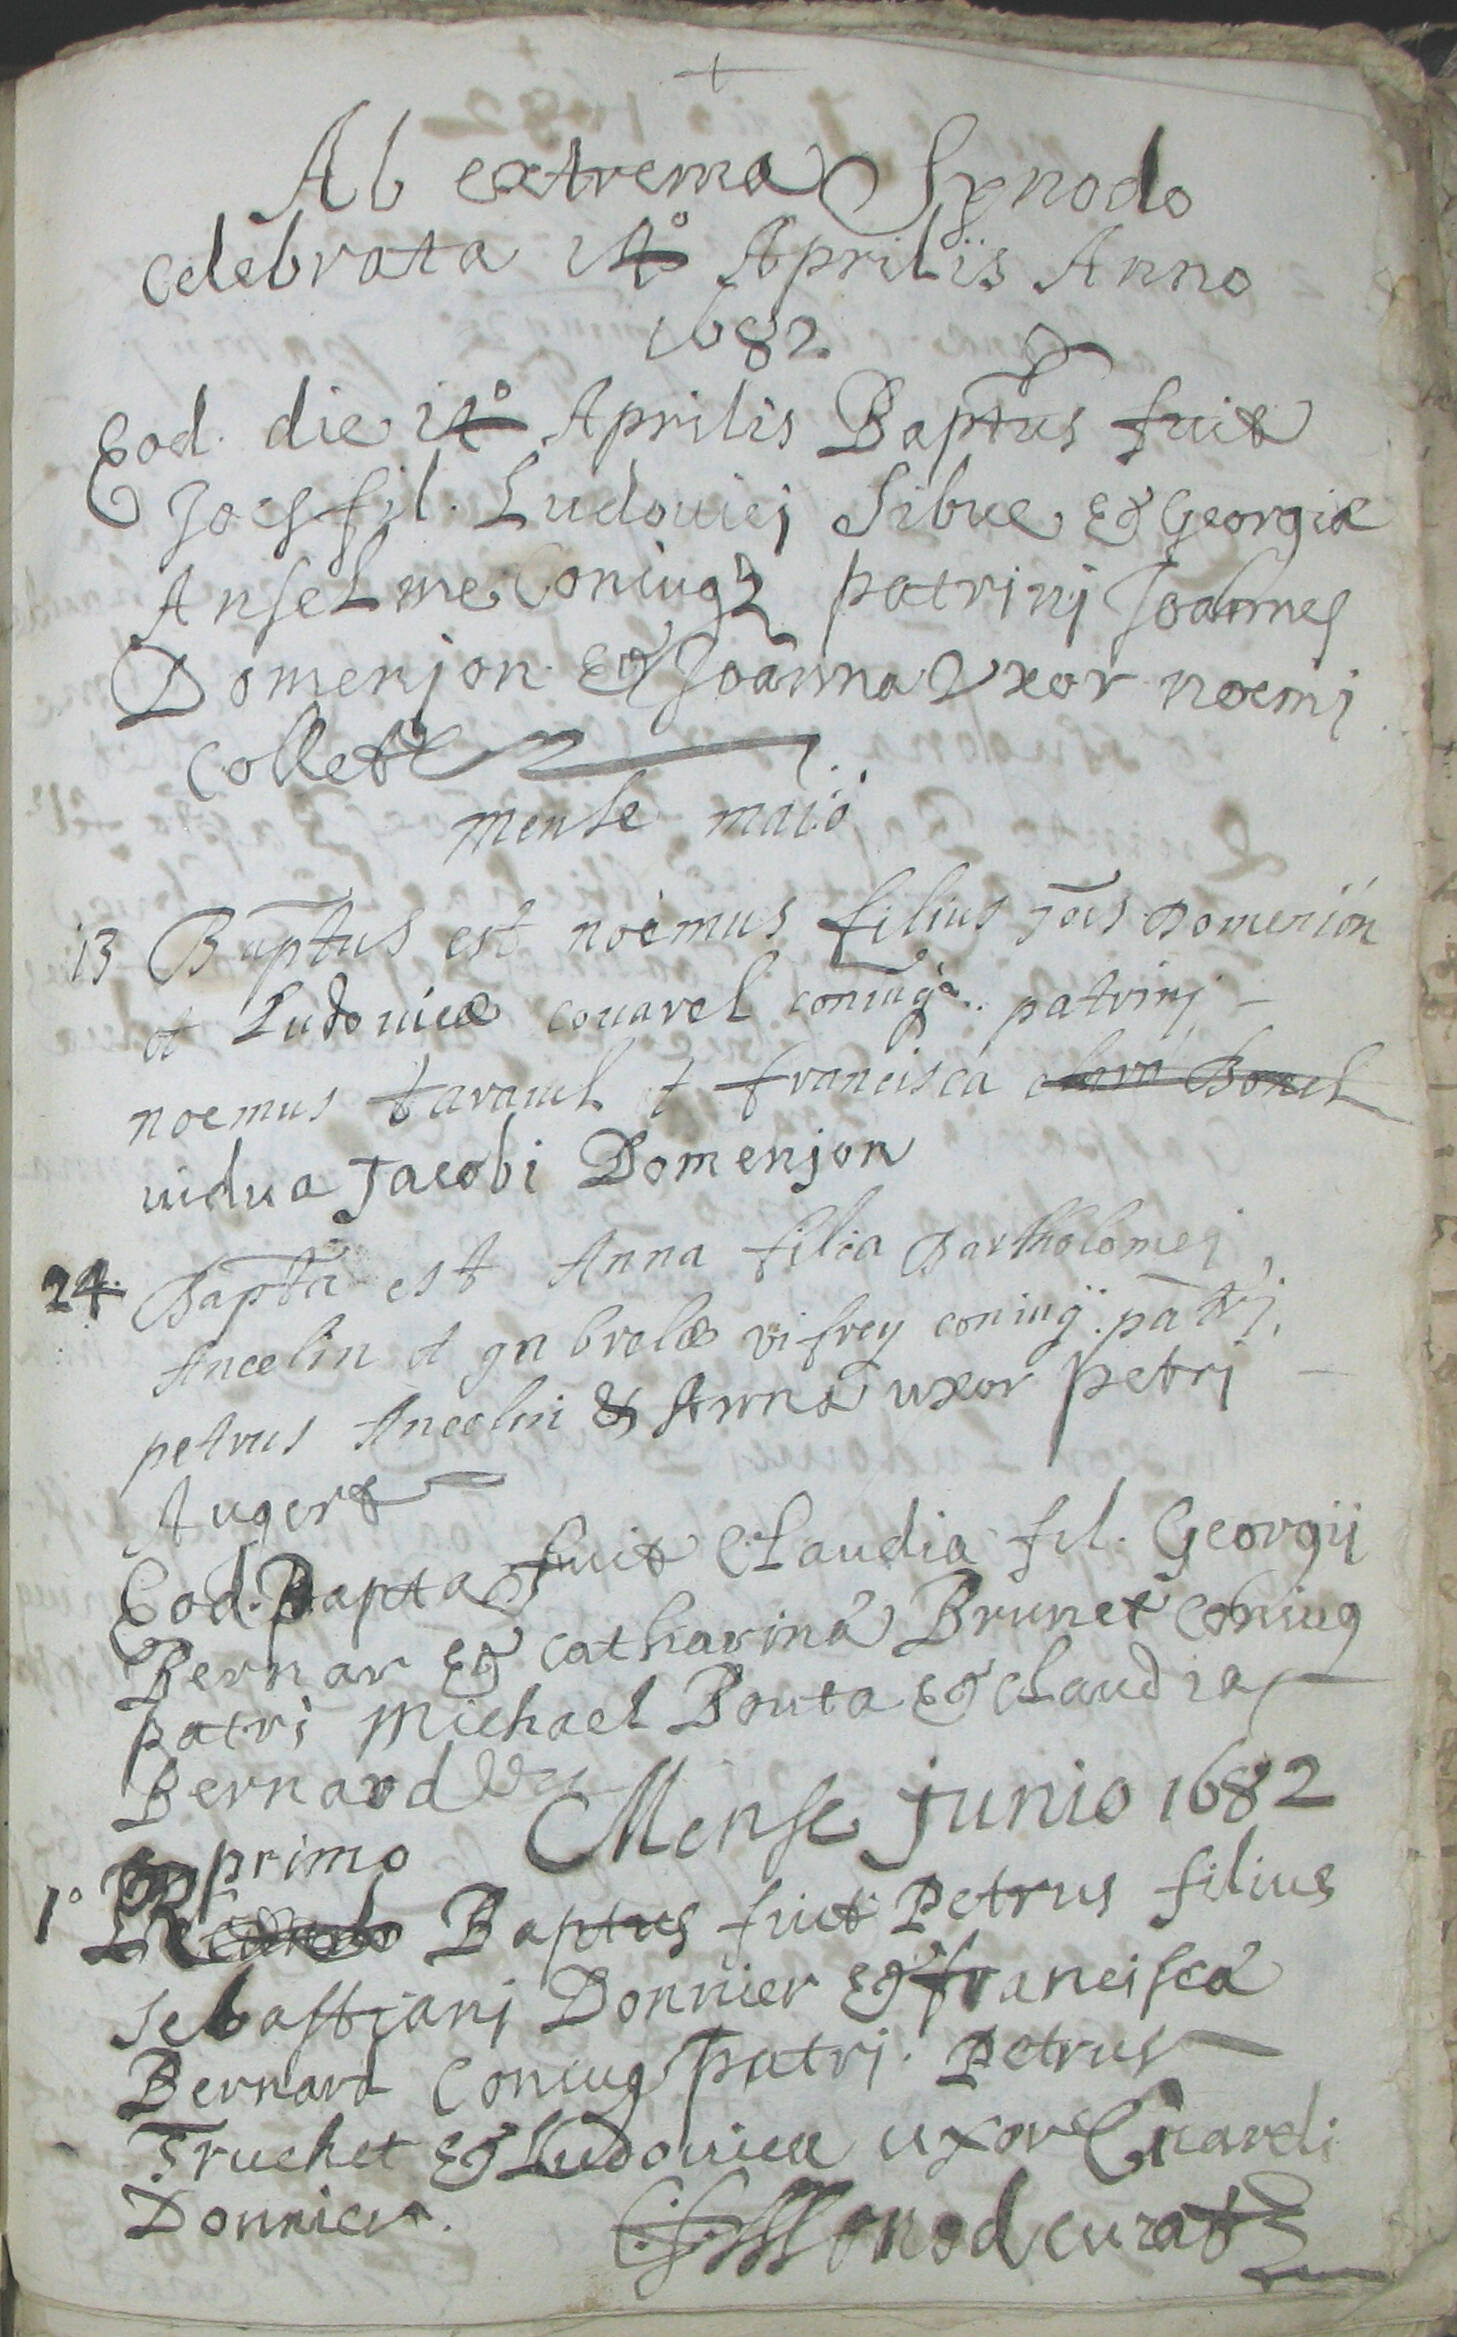 +
Ab extrema Synodo
celebrata 14° Apriliis Anno
1682
Eod. die 14° Aprilis Baptus fuit
Joes fil. Ludovici Sibue Et Georgiæ
Anselme Coniug patrinj Joannes
Domenjon Et Joanna Uxor noemj
Collett
Mense maio
13 Baptus est noemus filius Jois Domenion
et Ludovicæ covarel coniug. patrinj -
noemus taravel et francisca clara Bonel
vidua Jacobi Domenjon
24. Bapta est Anna filia Bartholomej
Ancelin et gabrelæ vifrey coniug. patrj.
petrus Ancelin & Anna uxor petrj -
Augert
Eod. Bapta fuit Claudia fil. Georgij
Bernar Et catharina Brunet coniug
patri Michael Bouta Et claudia
Bernard
Mense junio 1682
primo
1° Baptus fuit Petrus filius
sebastjanj Donnier Et francisca
Bernard Coniug patrj. Petrus
Truchet Et Ludovica uxor
Donnier. curat